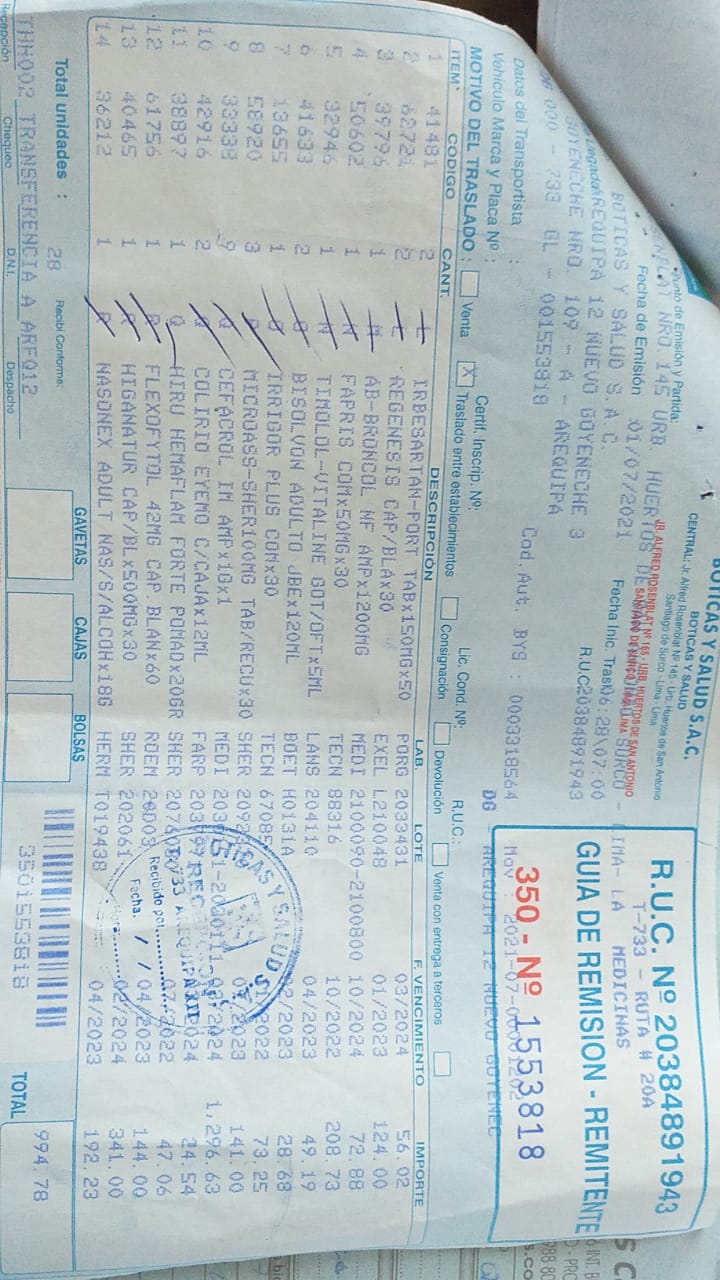 BOTICAS Y SALUD S.A.C.
BOTICAS Y SALUD
CENTRAL: Jr. Alfred Rosenblat Nº 145 Urb. Huertos de San Antonio
Santiago de Surco - Lima - Lima
JR. ALFRED ROSENBLAT Nº 165 - URB. HUERTOS DE SAN ANTONIO
SANTIAGO DE SURCO - LIMA - LIMA
R.U.C. Nº 20384891943
T-733 - RUTA # 20A
MEDICINAS
GUIA DE REMISION - REMITENTE
350 - Nº 1553818
Punto de Emisión y Partida:
NRO.145 URB. HUERTOS DE SURCO - LIMA- LA
Fecha de Emisión :01/07/2021
Fecha Inic. Trasl
06:28\07:00
BOTICAS Y SALUD S.A.C.
R.U.C
20384891943
AREQUIPA 12 NUEVO GOYENECHE 3
GOYENECHE NRO. 109 - A - AREQUIPA
000 - 733 GL - 001553818
Cod.Aut. BYS : 0003318564
DG - AREQUIPA 12 NUEVO GOYENEC
Datos del Transportista :
Vehículo Marca y Placa Nº :
Certif. Inscrip. Nº:
Lic. Cond. Nº:
R.U.C.:
MOTIVO DEL TRASLADO: Venta X Traslado entre establecimientos Consignación Devolución Venta con entrega a terceros
ITEM CODIGO CANT. DESCRIPCIÓN LAB. LOTE F. VENCIMIENTO IMPORTE
1 41481 2 L IRBESARTAN-PORT TABx150MGx50 PORG 2033431 03/2024 56.02
2 62721 2 L REGENESIS CAP/BLAx30 EXEL L210048 01/2023 124.00
3 39796 1 M AB-BRONCOL NF AMPx1200MG MEDI 2100090-2100800 10/2024 72.88
4 50602 1 M FAPRIS COMx50MGx30 TECN 88316 10/2022 208.73
5 32946 1 N TIMOLOL-VITALINE GOT/OFTx5ML LANS 204110 04/2023 49.19
6 41633 2 BISOLVON ADULTO JBEx120ML BOET H0131A 2023 28.68
7 13655 1 IRRIGOR PLUS COMx30 TECN 2022 73.25
8 58920 3 MICROASS-SHER100MG TAB/RECUx30 SHER 2023 141.00
9 33338 9 Q CEFACROL IM AMPx1Gx1 MEDI 2024 1,296.63
10 42916 2 COLIRIO EYEMO C/CAJAx12ML FARP 2024 24.54
11 38897 1 Q HIRU HEMAFLAM FORTE POMADx20GR SHER 2022 47.06
12 61756 1 R FLEXOFYTOL 42MG CAP.BLANx60 ROEM 04/2023 144.00
13 40465 1 R HIGANATUR CAP/BLx500MGx30 SHER 202061 2024 341.00
14 36212 1 R NASONEX ADULT NAS/S/ALCOHx18G HERM T019438 04/2023 192.23
BOTICAS Y SALUD S.A.C.
AREQUIPA XII
Recibido por
Fecha: / /
Hora:
Total unidades : 28
Recibí Conforme:
GAVETAS CAJAS BOLSAS
3501553818
TOTAL 994.78
THH002 TRANSFERENCIA A AREQ12
Recepción Chequeo D.N.I. Despacho